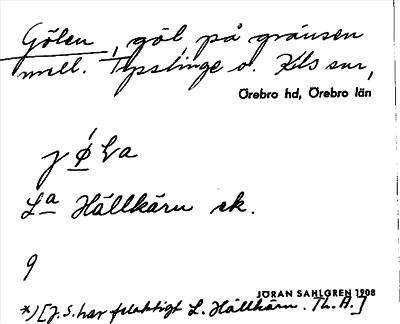 Gölen, göl på gränsen
mell. Tysslinge o. Kils snr,
Örebro hd, Örebro län
La Hällkäru ek.
9
JÖRAN SAHLGREN 1908
*) [J. S. har felaktigt L. Hällkäru. Th. A.]